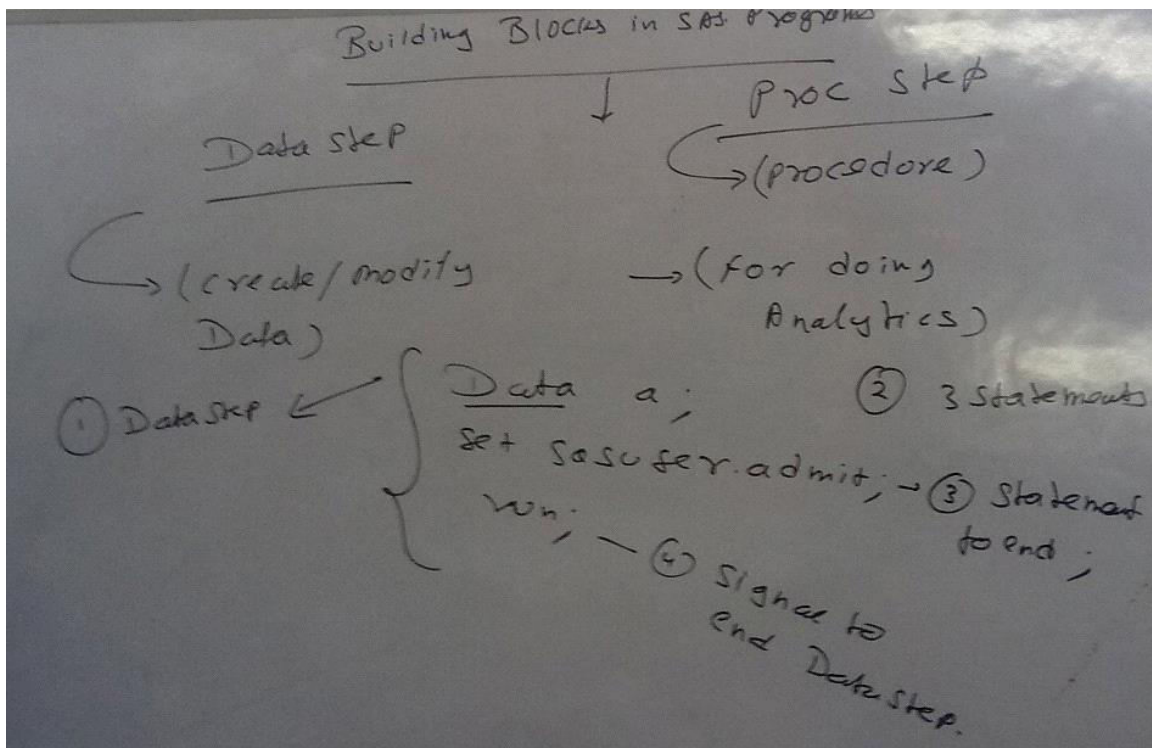 Building Blocks in SAS Programs
Data step
Proc step
(procedore)
(create/modify
Data)
(for doing
Analytics)
① Data step
Data a;
set sasuser.admit;
run;
② 3 statements
③ statement
to end ;
④ Signal to
end Data step.